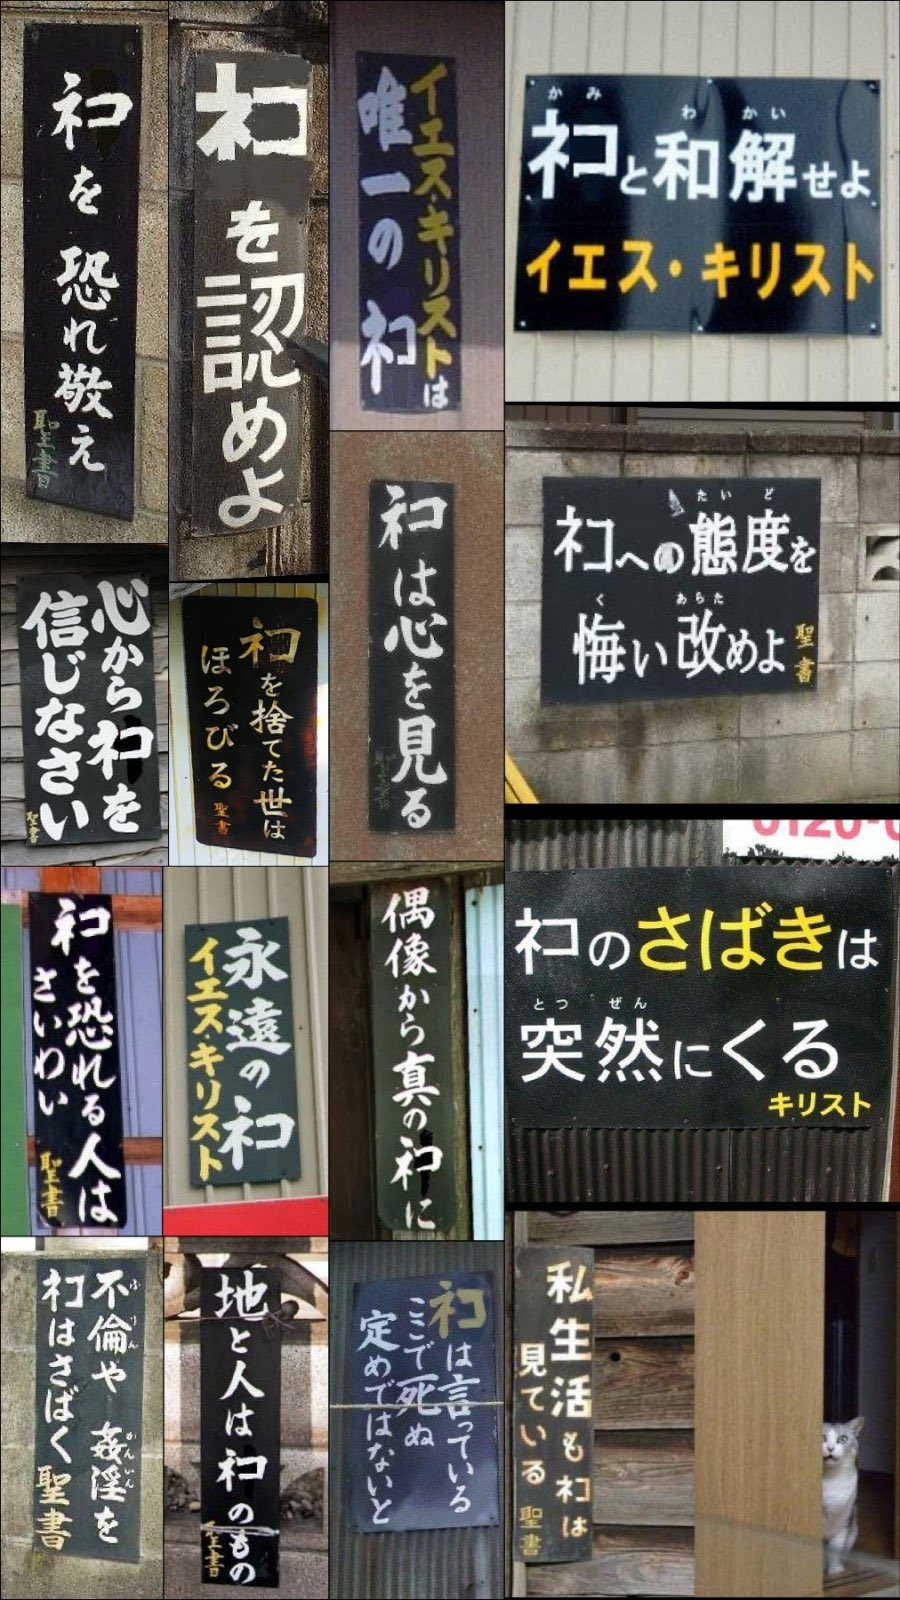 ネコを恐れ敬え
聖書
ネコを認めよ
イエス・キリストは
唯一のネコ
かみ わ かい
ネコと和解せよ
イエス・キリスト
ネコは心を見る
聖書
たいど
ネコへの態度を
く あらた
悔い改めよ
聖書
心からネコを
信じなさい
聖書
ネコを捨てた世は
ほろびる
聖書
0120-0
ネコのさばきは
とつ ぜん
突然にくる
キリスト
ネコを恐れる人は
さいわい
聖書
永遠のネコ
イエス・キリスト
偶像から真のネコに
不倫や姦淫を
ふりん かんいん
ネコはさばく
聖書
地と人はネコのもの
聖書
ネコは言っている
ここで死ぬ
定めではないと
私生活もネコは
見ている
聖書